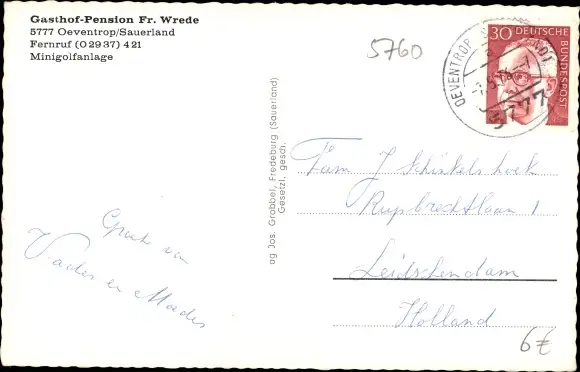 Gasthof-Pension Fr. Wrede
5777 Oeventrop/Sauerland
Fernruf (02937) 421
Minigolfanlage
5760
30 DEUTSCHE BUNDESPOST
OEVENTROP
5777
ag Jos. Grobbel, Fredeburg (Sauerland)
Gesetzl. gesch.
Fam J Schinkelshoek
Ruysbrechtlaan 1
Leidschendam
Holland
van
Vader en Moeder
6€